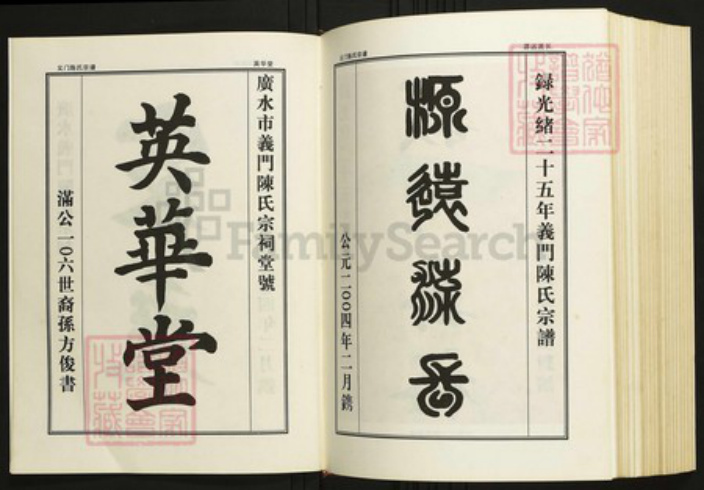 錄光緒二十五年義門陳氏宗譜
源遠流長
公元二00四年二月鐫
廣水市義門陳氏宗祠堂號
英華堂
滿公一0六世裔孫方俊書
义门陈氏宗谱
英华堂
FamilySearch